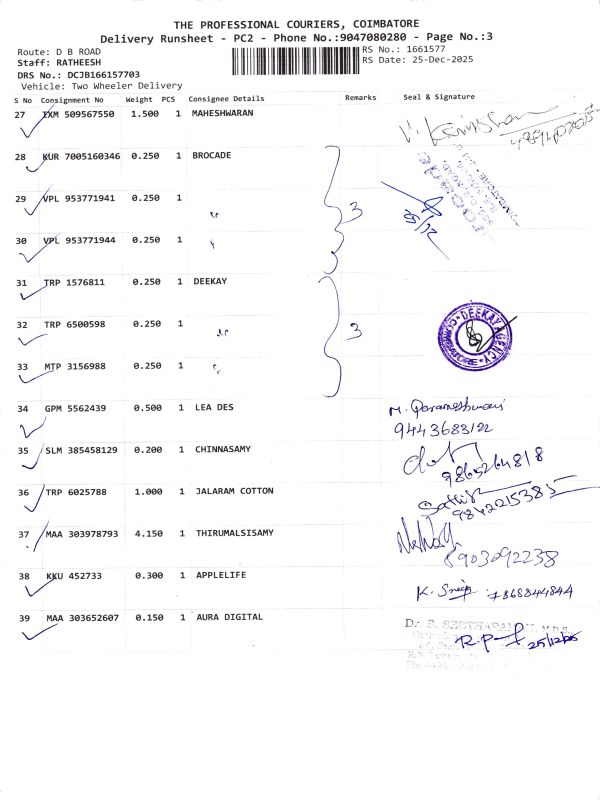 THE PROFESSIONAL COURIERS, COIMBATORE
Delivery Runsheet - PC2 - Phone No.:9047080280 - Page No.:3
Route: D B ROAD
RS No.: 1661577
Staff: RATHEESH
RS Date: 25-Dec-2025
DRS No.: DCJB166157703
Vehicle: Two Wheeler Delivery
S No Consignment No Weight PCS Consignee Details Remarks Seal & Signature
27 IXM 509567550 1.500 1 MAHESHWARAN
28 KUR 7005160346 0.250 1 BROCADE
29 VPL 953771941 0.250 1 "
3
25/12
30 VPL 953771944 0.250 1 "
31 TRP 1576811 0.250 1 DEEKAY
32 TRP 6500598 0.250 1 "
3
DEEKAY AGENCY
COIMBATORE
33 MTP 3156988 0.250 1 "
34 GPM 5562439 0.500 1 LEA DES M. Parameshwari
9443683122
35 SLM 385458129 0.200 1 CHINNASAMY
9865264818
36 TRP 6025788 1.000 1 JALARAM COTTON
9842215385
37 MAA 303978793 4.150 1 THIRUMALSISAMY
8903092238
38 KKU 452733 0.300 1 APPLELIFE K. 7868844844
39 MAA 303652607 0.150 1 AURA DIGITAL
Dr. S. SEETHARAMAN, M.D.S.
25/12/25